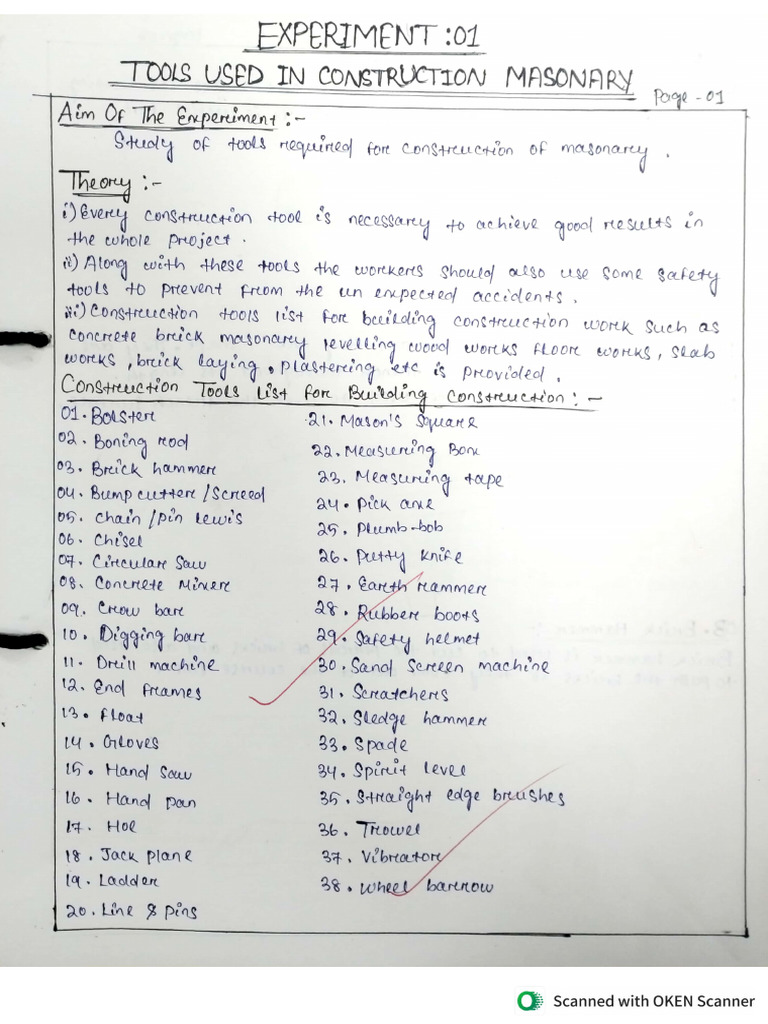 EXPERIMENT :01
TOOLS USED IN CONSTRUCTION MASONARY
Page - 01
Aim Of The Experiment :-
Study of tools required for construction of masonary .
Theory :-
i) Every construction tool is necessary to achieve good results in
the whole project .
ii) Along with these tools the workers should also use some safety
tools to prevent from the un expected accidents .
iii) Construction tools list for building construction work such as
concrete brick masonary levelling wood works floor works, slab
works , brick laying , plastering etc is provided .
Construction Tools List for Building Construction : -
01. Bolster
02. Boning rod
03. Brick hammer
04. Bump cutter / Screed
05. Chain / Pin Lewis
06. Chisel
07. Circular Saw
08. Concrete Mixer
09. Crow bar
10. Digging bar
11. Drill machine
12. End frames
13. Float
14. Gloves
15. Hand Saw
16. Hand pan
17. Hoe
18. Jack plane
19. Ladder
20. Line & Pins
21. Mason's Square
22. Measuring Box
23. Measuring tape
24. Pick axe
25. Plumb-bob
26. Putty knife
27. Earth rammer
28. Rubber boots
29. Safety helmet
30. Sand Screen machine
31. Scratchers
32. Sledge hammer
33. Spade
34. Spirit level
35. Straight edge brushes
36. Trowel
37. Vibrator
38. Wheel barrow
Scanned with OKEN Scanner